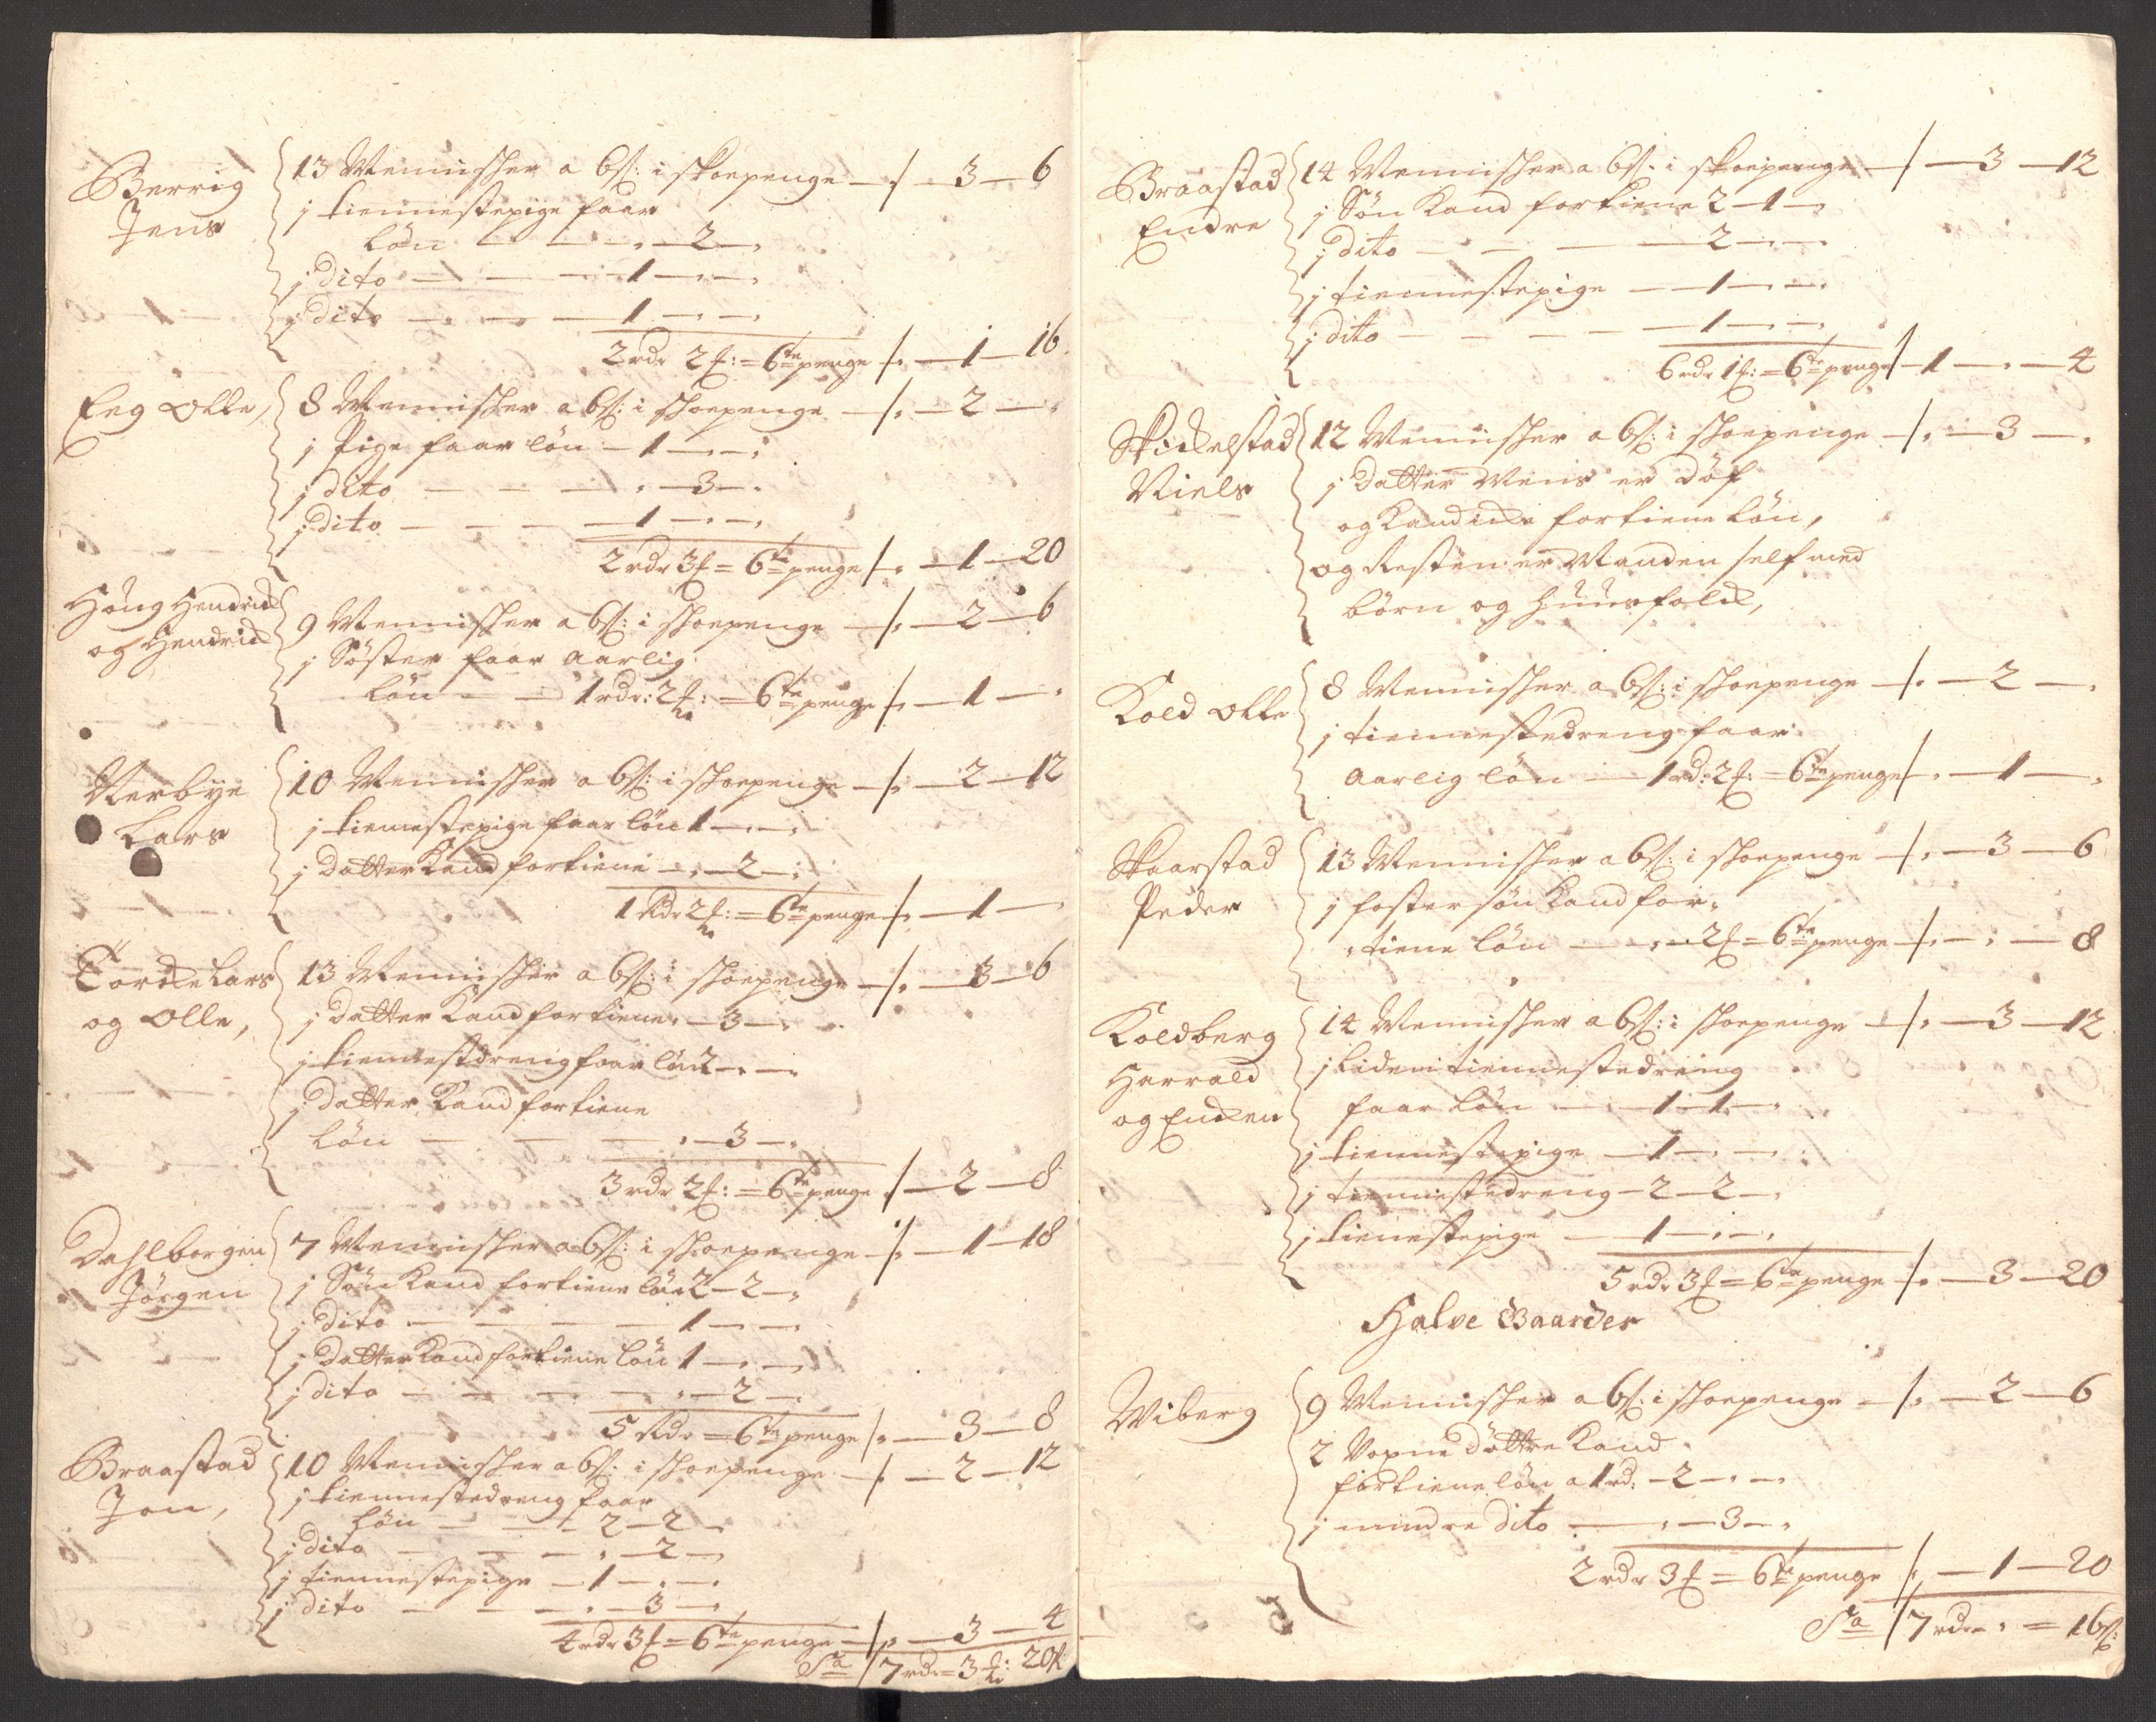 Berrig
Jens
13 Mennisker a 6 ß: i skoepenge — 3 — 6
j tiennestepige faar
løn — 2 —
j dito — 1 —
j dito — 1 —
2 rdr 2 f: = 6te penge — 1 — 16
Eeg Olle,
8 Mennisker a 6 ß: i skoepenge — 2 —
j Pige faar løn — 1 —
j dito — 3 —
j dito — 1 —
2 rdr 3 f = 6te penge — 1 — 20
Høng Hendrick
og Hendrick
9 Mennisker a 6 ß: i skoepenge — 2 — 6
j Søster faar aarlig
løn — 1 rdr: 2 f: = 6te penge — 1 —
Nerbye
Lars
10 Mennisker a 6 ß: i skoepenge — 2 — 12
j tiennestepige faar løn 1 —
j datter kand fortiene — 2 —
1 Rdr 2 f: = 6te penge — 1 —
Lars
og Olle,
13 Mennisker a 6 ß: i skoepenge — 3 — 6
j datter kand fortiene — 3 —
j tiennestdreng faar løn 2 —
j datter kand fortiene
løn — 3 —
3 rdr 2 f: = 6te penge — 2 — 8
Dahlborgen
Jörgen
7 Mennisker a 6 ß: i skoepenge — 1 — 18
j Søn kand fortiene løn 2 — 2 —
j dito — 1 —
j datter kand fortiene løn 1 —
j dito — 2 —
5 Rdr = 6te penge — 3 — 8
Braastad
Jon,
10 Mennisker a 6 ß: i skoepenge — 2 — 12
j tiennestedreng faar
løn — 2 — 2 —
j dito — 2 —
j tiennestepige — 1 —
j dito — 3 —
4 rdr 3 f = 6te penge — 3 — 4
Sa 7 rdr = 3 f: 20 ß
Braastad
Endre
14 Mennisker a 6 ß: i skoepenge — 3 — 12
j Søn kand fortiene 2 — 1 —
j dito — 2 —
j tiennestepige — 1 —
j dito — 1 —
6 rdr 1 f: = 6te penge — 1 — 4
Skickelstad
Niels
12 Mennisker a 6 ß: i skoepenge — 3 —
j datter er döf
og kand icke fortiene løn,
og Resten er Manden self med
børn og huusfolck,
Kold Olle
8 Mennisker a 6 ß: i skoepenge — 2 —
j tiennestedreng faar
aarlig løn — 1 rd: 2 f: = 6te penge — 1 —
Skaarstad
Peder
13 Mennisker a 6 ß: i skoepenge — 3 — 6
j foster søn kand for-
tiene løn — 2 f = 6te penge — 8
Koldberg
Harrald
og Enden
14 Mennisker a 6 ß: i skoepenge — 3 — 12
j liden tiennestedreng
faar løn — 1 — 1 —
j tiennestepige — 1 —
j tiennestedreng — 2 — 2 —
j tienestepige — 1 —
5 rdr 3 f = 6te penge — 3 — 20
Halve Gaarder
Wiberg
9 Mennisker a 6 ß: i skoepenge — 2 — 6
2 Voxne döttre kand
fortiene løn a 1 rd: — 2 —
j mindre dito — 3 —
2 rdr 3 f = 6te penge — 1 — 20
Sa 7 rdr = 16 ß: